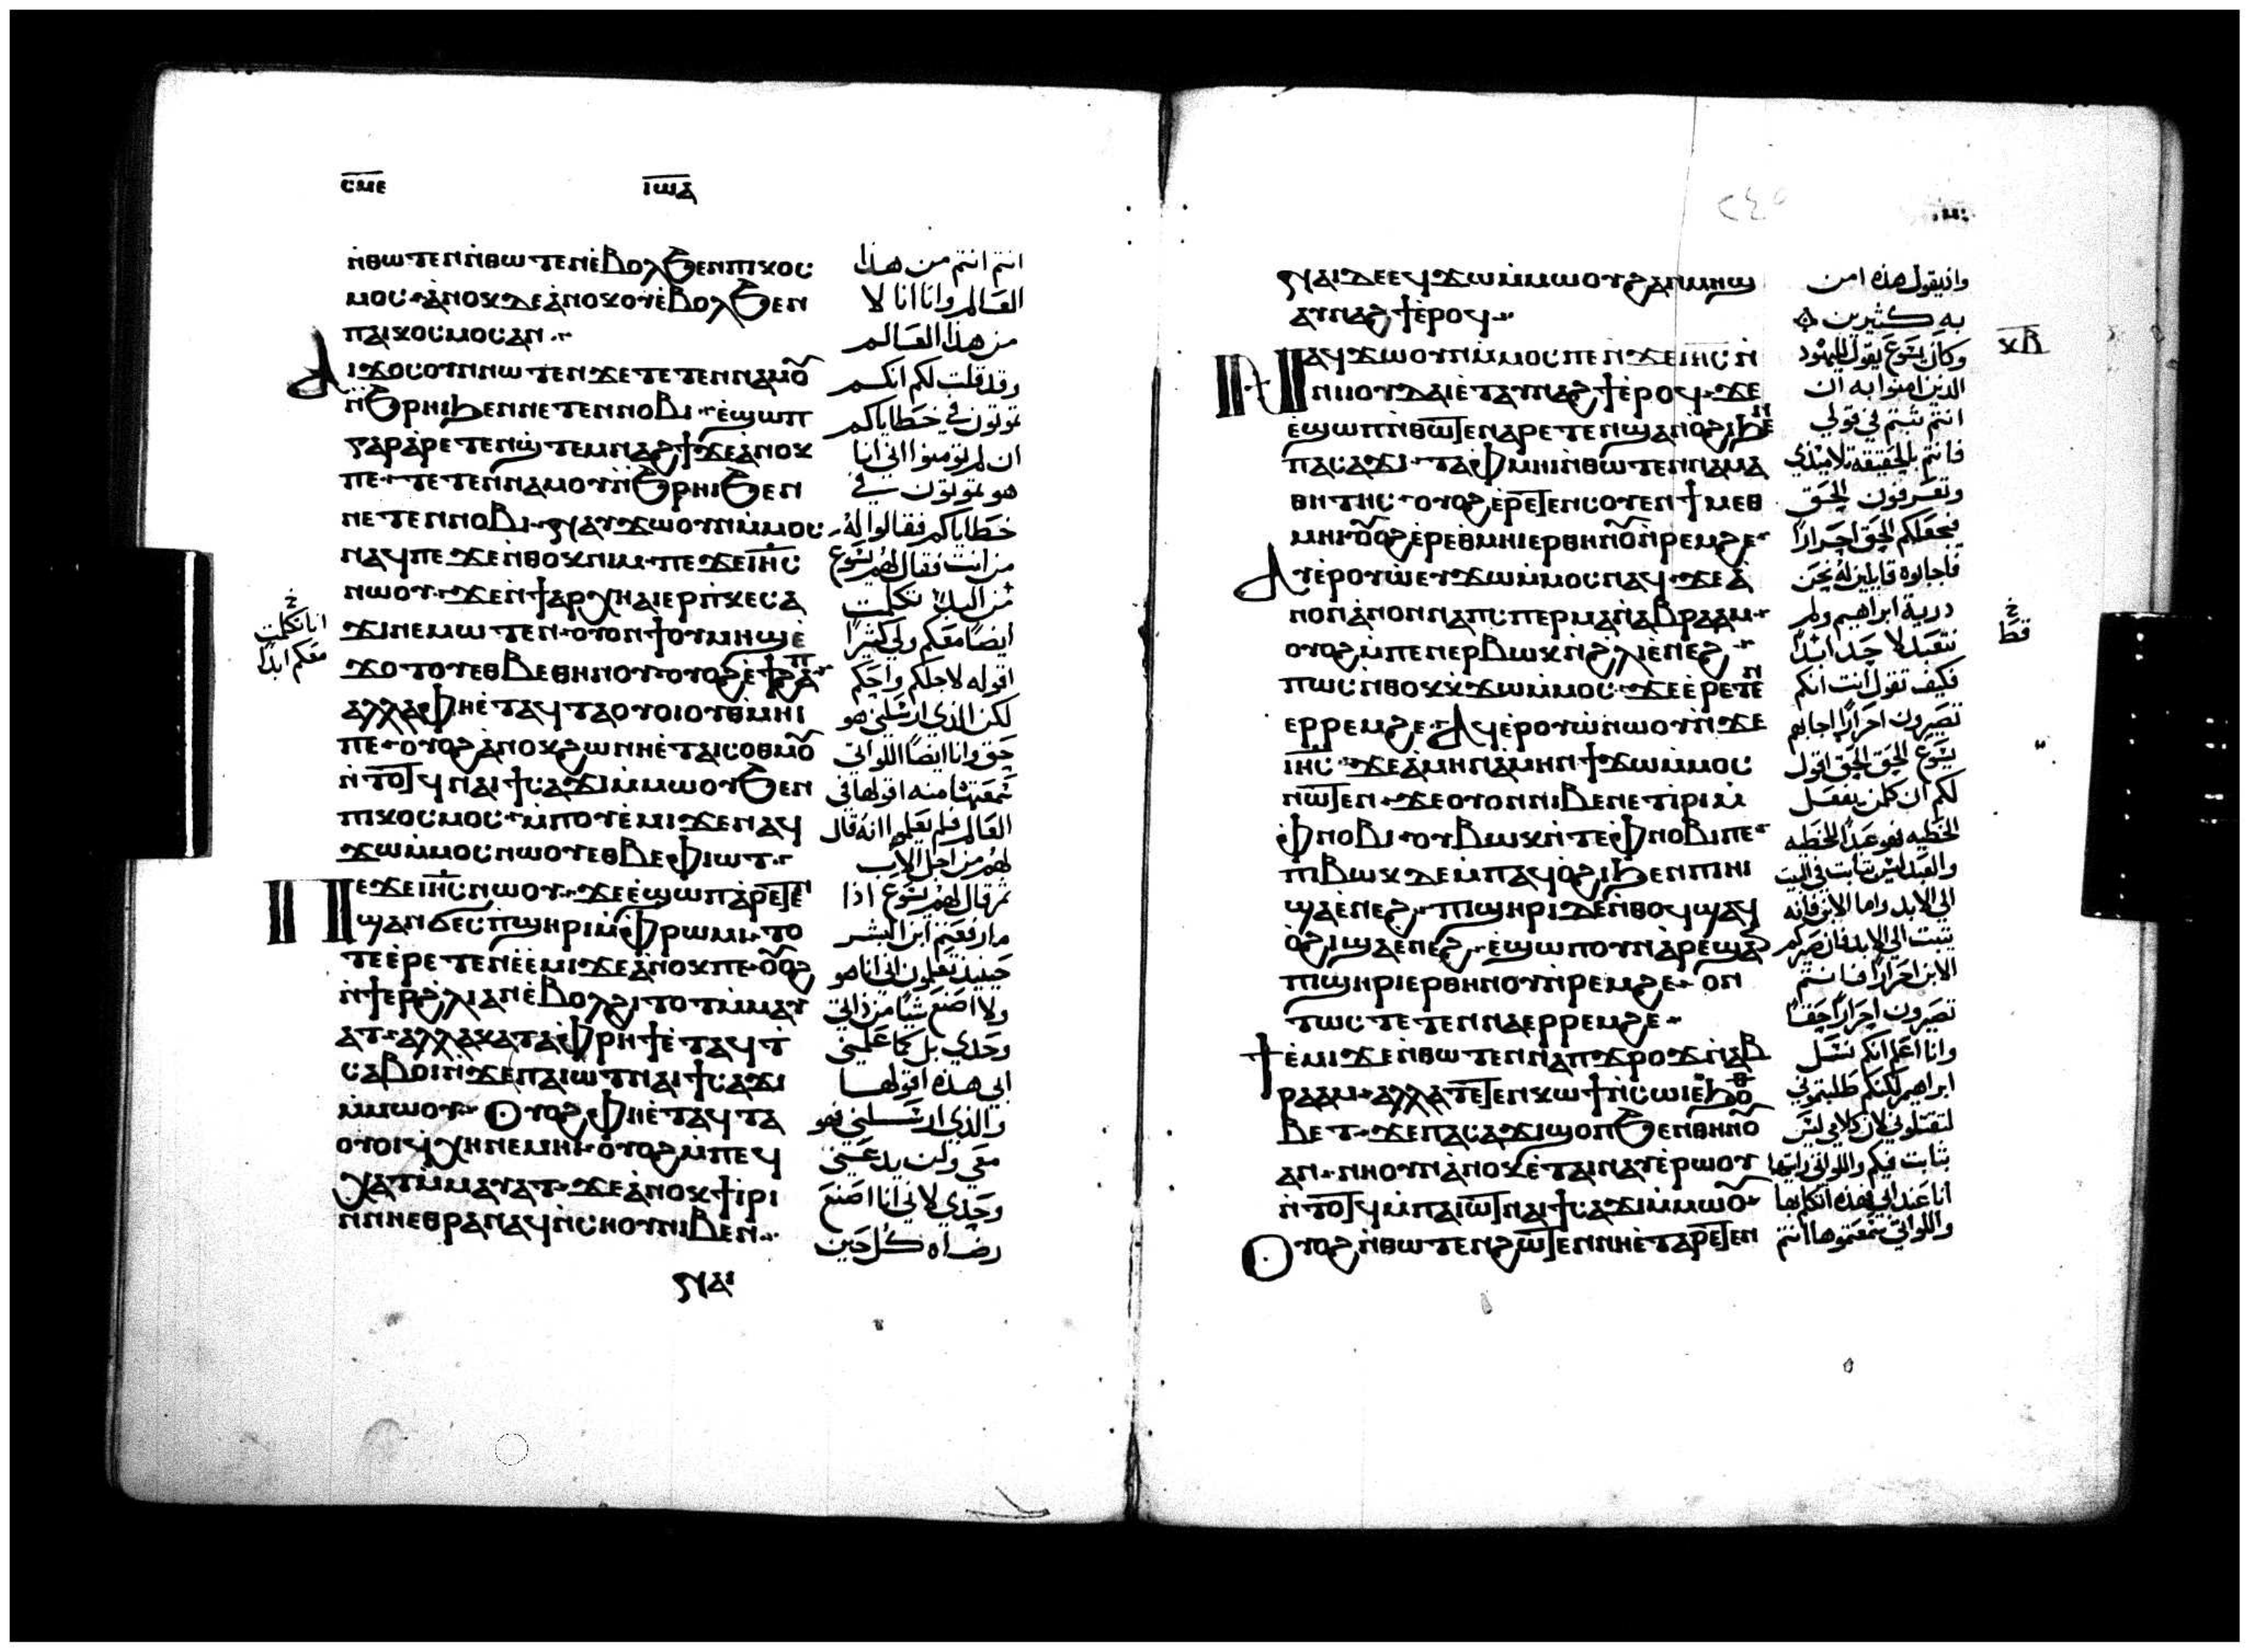 ⲥⲙⲉ
ⲓⲱⲁ
ⲛ̇ⲑⲱⲧⲉⲛⲛ̇ⲑⲱⲧⲉⲛⲉ̇ⲃⲟⲗϧⲉⲛⲡⲓⲕⲟⲥ
ⲙⲟⲥ ⲁ̇ⲛⲟⲕⲇⲉⲁ̇ⲛⲟⲕⲟⲩⲉ̇ⲃⲟⲗϧⲉⲛ
ⲡⲁⲓⲕⲟⲥⲙⲟⲥⲁⲛ
ⲁⲓϫⲟⲥⲟⲩⲛⲛⲱⲧⲉⲛϫⲉⲧⲉⲧⲉⲛⲛⲁⲙⲟⲩ
ⲛ̇ϧⲣⲏⲓϧⲉⲛⲛⲉⲧⲉⲛⲛⲟⲃⲓ ⲉ̇ϣⲱⲡ
ⲅⲁⲣⲁ̇ⲣⲉⲧⲉⲛϣ̇ⲧⲉⲙⲛⲁϩϯϫⲉⲁ̇ⲛⲟⲕ
ⲡⲉ ⲧⲉⲧⲉⲛⲛⲁⲙⲟⲩⲛ̇ϧⲣⲏⲓϧⲉⲛ
ⲛⲉⲧⲉⲛⲛⲟⲃⲓ ⲛⲁⲩϫⲱⲟⲩⲛⲙ̇ⲙⲟⲥ
ⲛⲁϥⲡⲉϫⲉⲛ̇ⲑⲟⲕⲛⲓⲙ ⲡⲉϫⲉⲓⲏ̅ⲥ̅
ⲛⲱⲟⲩ ϫⲉⲛ̇ϯⲁⲣⲭⲏⲁⲓⲉⲣⲡ̇ⲕⲉⲥⲁ
ϫⲓⲛⲉⲙⲱⲧⲉⲛ ⲟⲩⲟⲛϯⲟⲩⲙⲏϣⲉ̇
ϫⲟⲧⲟⲩⲉⲑⲃⲉⲑⲏⲛⲟⲩ ⲟⲩⲟϩⲉ̇ϯϩⲁⲡ
ⲁⲗⲗⲁⲫⲏⲉ̇ⲧⲁϥⲧⲁⲟⲩⲟⲓⲟⲩⲑ̇ⲙⲏⲓ
ⲡⲉ ⲟⲩⲟϩⲁ̇ⲛⲟⲕϩⲱⲛⲏⲉ̇ⲧⲁⲓⲥⲟⲑⲙⲟⲩ
ⲛ̇ⲧⲟⲧϥⲛⲁⲓϯⲥⲁϫⲓⲙ̇ⲙⲱⲟⲩϧⲉⲛ
ⲡⲓⲕⲟⲥⲙⲟⲥ ⲙ̇ⲡⲟⲩⲉ̇ⲙⲓϫⲉⲛⲁϥ
ϫⲱⲙ̇ⲙⲟⲥⲛⲱⲟⲩⲉⲑⲃⲉⲫⲓⲱⲧ
ⲡⲉϫⲉⲓⲏ̅ⲥ̅ⲛⲱⲟⲩ ϫⲉⲉ̇ϣⲱⲡⲁ̇ⲣⲉⲧⲉⲛ
ϣⲁⲛϭⲉⲥⲡϣⲏⲣⲓⲙ̇ⲫⲣⲱⲙⲓ ⲧⲟ
ⲧⲉⲉ̇ⲣⲉⲧⲉⲛⲉ̇ⲉⲙⲓϫⲉⲁ̇ⲛⲟⲕⲡⲉ ⲟⲩⲟϩ
ⲛ̇ϯⲉⲣϩ̇ⲗⲓⲁⲛⲉ̇ⲃⲟⲗϩⲓⲧⲟⲧⲙ̇ⲙⲁⲩ
ⲁⲧ ⲁⲗⲗⲁⲕⲁⲧⲁⲫⲣⲏϯⲉ̇ⲧⲁϥⲧ
ⲥⲁⲃⲟⲓⲛ̇ϫⲉⲡⲁⲓⲱⲧⲛⲁⲓϯⲥⲁϫⲓ
ⲙ̇ⲙⲱⲟⲩ ⲟⲩⲟϩⲫⲏⲉ̇ⲧⲁϥⲧⲁ
ⲟⲩⲟⲓϥ̇ⲭⲏⲛⲉⲙⲏⲓ ⲟⲩⲟϩⲙ̇ⲡⲉϥ
ⲭⲁⲧⲙ̇ⲙⲁⲩⲁⲧ ϫⲉⲁ̇ⲛⲟⲕϯⲓⲣⲓ
ⲛ̇ⲛⲏⲉⲑⲣⲁⲛⲁϥⲛ̇ⲥⲏⲟⲩⲛⲓⲃⲉⲛ
ⲛⲁⲓ
انتم انتم من هذا
العالم وانا انا لا
من هذا العالم
وقد قلت لكم انكم
تموتون في خطاياكم
ان لم تومنوا اني انا
هو تموتون في
خطاياكم فقالوا له
من انت فقال لهم يسوع
من البدئ تكلمت
ايضا معكم ولي كثيرا
اقوله لاجلكم واحكم
لكن الذي ارسلني هو
حق وانا ايضا اللواتي
سمعتها منه اقولها في
العالم فلم يعلموا انه قال
لهم من اجل الاب
ثم قال لهم يسوع اذا
ما رفعتم ابن البشر
حينيذ تعلمون اني انا هو
ولا اصنع شيا من ذاتي
وحدي بل كما علمني
ابي هذه اقولها
والذي ارسلني فهو
معي ولن يدعني
وحدي لاني انا اصنع
رضاه كل حين
انا تكلمت
معكم ابدا
٢٤٥
ⲛⲁⲓⲇⲉⲉϥϫⲱⲙ̇ⲙⲱⲟⲩϩⲁⲛⲙⲏϣ
ⲁⲩⲛⲁϩϯⲉ̇ⲣⲟϥ
ⲛⲁϥϫⲱⲟⲩⲛⲙ̇ⲙⲟⲥⲡⲉⲛ̇ϫⲉⲓⲏ̅ⲥ̅ⲛ̇
ⲛⲓⲓⲟⲩⲇⲁⲓⲉ̇ⲧⲁⲩⲛⲁϩϯⲉ̇ⲣⲟϥ ϫⲉ
ⲉ̇ϣⲱⲡⲛ̇ⲑⲱⲧⲉⲛⲁⲣⲉⲧⲉⲛϣⲁⲛⲟ̇ϩⲓϧⲉⲛ
ⲡⲁⲥⲁϫⲓ ⲧⲁⲫⲙⲏⲓⲛ̇ⲑⲱⲧⲉⲛⲛⲁⲙⲁ
ⲑⲏⲧⲏⲥ ⲟⲩⲟϩⲉ̇ⲣⲉⲧⲉⲛⲥⲟⲩⲉⲛϯⲙⲉⲑ
ⲙⲏⲓ ⲟⲩⲟϩⲉ̇ⲣⲉⲑⲙⲏⲓⲉⲣⲑⲏⲛⲟⲩⲛ̇ⲣⲉⲙϩⲉ
ⲁⲩⲉ̇ⲣⲟⲩⲱ̇ⲉⲩϫⲱⲙ̇ⲙⲟⲥⲛⲁϥ ϫⲉⲁ̇
ⲛⲟⲛⲁ̇ⲛⲟⲛⲛⲁⲡⲥⲡⲉⲣⲙⲁⲛ̇ⲁⲃⲣⲁⲁⲙ
ⲟⲩⲟϩⲙ̇ⲡⲉⲛⲉⲣⲃⲱⲕⲛ̇ϩ̇ⲗⲓⲉ̇ⲛⲉϩ
ⲡⲱⲥⲛ̇ⲑⲟⲕⲕ̇ϫⲱⲙ̇ⲙⲟⲥ ϫⲉⲉ̇ⲣⲉⲧⲉⲛ
ⲉⲣⲣⲉⲙϩⲉ ⲁϥⲉ̇ⲣⲟⲩⲱ̇ⲛⲱⲟⲩⲛ̇ϫⲉ
ⲓⲏ̅ⲥ̅ ϫⲉⲁ̇ⲙⲏⲛⲁ̇ⲙⲏⲛϯϫⲱⲙ̇ⲙⲟⲥ
ⲛⲱⲧⲉⲛ ϫⲉⲟⲩⲟⲛⲛⲓⲃⲉⲛⲉⲧⲓⲣⲓⲙ̇
ⲫⲛⲟⲃⲓ ⲟⲩⲃⲱⲕⲛ̇ⲧⲉⲫⲛⲟⲃⲓⲡⲉ
ⲡⲓⲃⲱⲕⲇⲉⲙ̇ⲡⲁϥⲟ̇ϩⲓϧⲉⲛⲡⲓⲏⲓ
ϣⲁⲉ̇ⲛⲉϩ ⲡⲓϣⲏⲣⲓⲇⲉⲛ̇ⲑⲟϥϣⲁϥ
ⲟ̇ϩⲓϣⲁⲉ̇ⲛⲉϩ ⲉ̇ϣⲱⲡⲟⲩⲛⲁ̇ⲣⲉϣⲁⲛ
ⲡⲓϣⲏⲣⲓⲉⲣⲑⲏⲛⲟⲩⲛ̇ⲣⲉⲙϩⲉ ⲟⲛ
ⲧⲱⲥⲧⲉⲧⲉⲛⲛⲁⲉⲣⲣⲉⲙϩⲉ
ϯⲉ̇ⲙⲓϫⲉⲛ̇ⲑⲱⲧⲉⲛⲛⲁⲡϫⲣⲟϫⲛ̇ⲁⲃ
ⲣⲁⲁⲙ ⲁⲗⲗⲁⲧⲉⲧⲉⲛⲕⲱϯⲛ̇ⲥⲱⲓⲉ̇ϧⲟⲑ
ⲃⲉⲧ ϫⲉⲡⲁⲥⲁϫⲓϣⲟⲡϧⲉⲛⲑⲏⲛⲟⲩ
ⲁⲛ ⲛⲏⲟⲩⲛⲁ̇ⲛⲟⲕⲉ̇ⲧⲁⲓⲛⲁⲩⲉ̇ⲣⲱⲟⲩ
ⲛ̇ⲧⲟⲧϥⲙ̇ⲡⲁⲓⲱⲧⲛⲁⲓϯⲥⲁϫⲓⲙ̇ⲙⲱⲟⲩ
ⲟⲩⲟϩⲛ̇ⲑⲱⲧⲉⲛϩⲱⲧⲉⲛⲛⲏⲉ̇ⲧⲁⲣⲉⲧⲉⲛ
واذ يقول هذه امن
به كثيرين
وكان يسوع يقول لليهود
الذين امنوا به ان
انتم ثبتم في قولي
فانتم بالحقيقة تلاميذي
وتعرفون الحق
فيجعلكم الحق احرارا
فاجابوه قايلين له نحن
ذرية ابراهيم ولم
نتعبد لاحد ابدا
فكيف تقول انت انكم
تصيرون احرارا اجابهم
يسوع الحق الحق اقول
لكم ان كلمن يفعل
الخطيه فهو عبد الخطيه
والعبد ليس يثابت في البيت
الي الابد واما الابن فانه
يثبت الي الابد فان صيركم
الابن احرارا فانتم
تصيرون احرارا حقا
وانا اعلم انكم نسل
ابراهيم لكنكم طلبتموني
لتقتلوني لان كلامي ليس
بثابت فيكم واللواتي رايتها
انا عند ابي فهذه اتكلم بها
واللواتي سمعتموها انتم
ⲕⲃ
قط